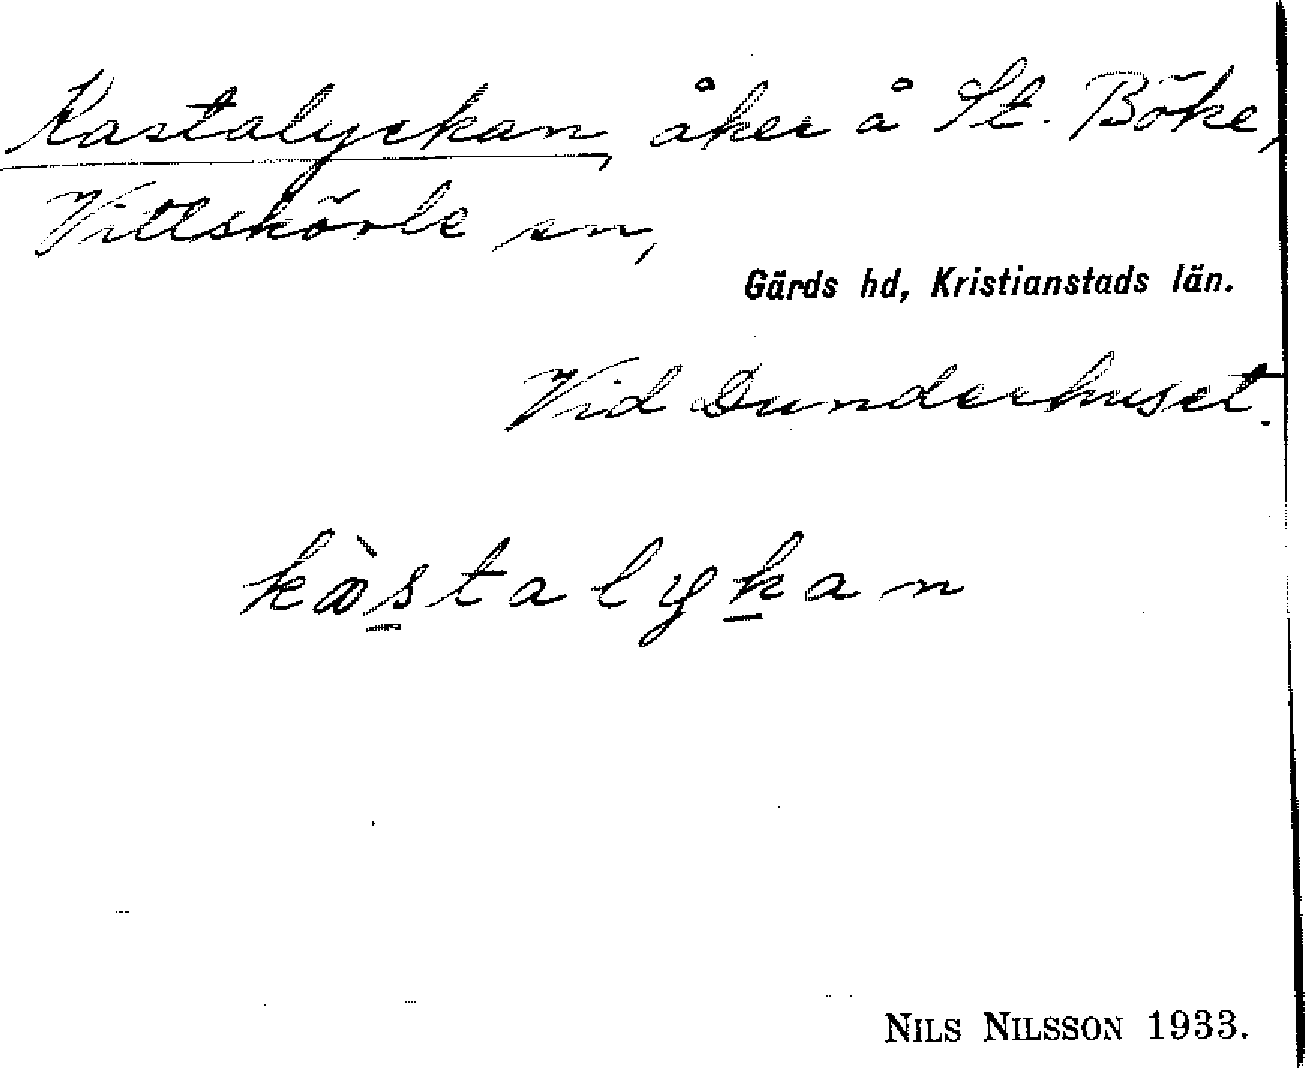 Kastalyckan, åker å St. Böke,
Vittskövle sn,
Gärds hd, Kristianstads län.
Vid Dunderhuset.
kàstalykan
NILS NILSSON 1933.